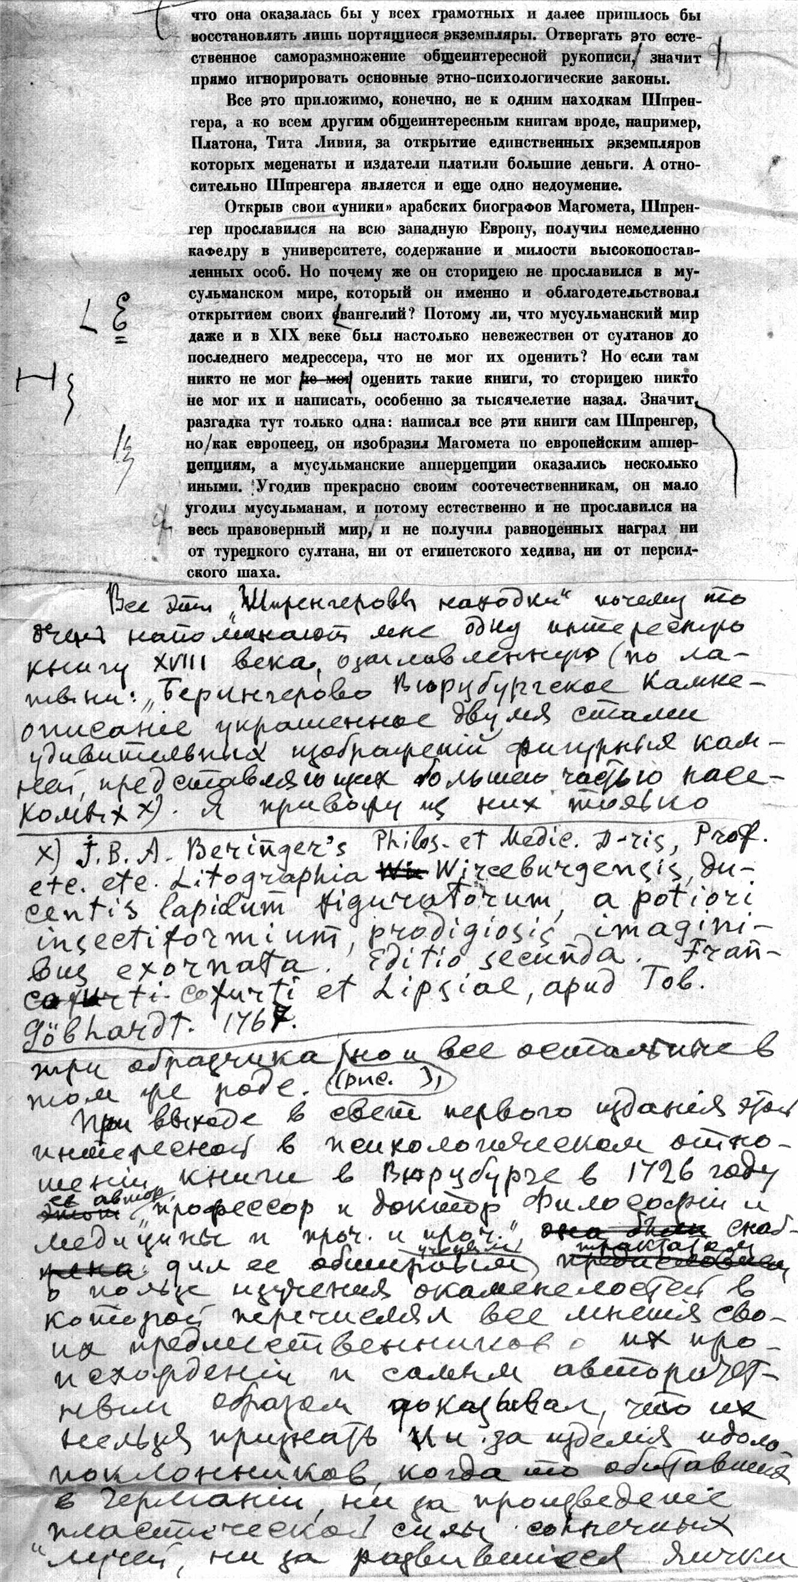 что она оказалась бы у всех грамотных и далее пришлось бы
восстановлять лишь портящиеся экземпляры. Отвергать это есте-
ственное саморазмножение общеинтересной рукописи, значит
прямо игнорировать основные этно-психологические законы.
Все это приложимо, конечно, не к одним находкам Шпрен-
гера, а ко всем другим общеинтересным книгам вроде, например,
Платона, Тита Ливия, за открытие единственных экземпляров
которых меценаты и издатели платили большие деньги. А отно-
сительно Шпренгера является и еще одно недоумение.
Открыв свои «уники» арабских биографов Магомета, Шпрен-
гер прославился на всю западную Европу, получил немедленно
кафедру в университете, содержание и милости высокопостав-
ленных особ. Но почему же он сторицею не прославился в му-
сульманском мире, который он именно и облагодетельствовал
открытием своих евангелий? Потому ли, что мусульманский мир
даже и в XIX веке был настолько невежествен от султанов до
последнего медрессера, что не мог их оценить? Но если там
никто не мог не мог оценить такие книги, то сторицею никто
не мог их и написать, особенно за тысячелетие назад. Значит,
разгадка тут только одна: написал все эти книги сам Шпренгер,
но как европеец, он изобразил Магомета по европейским аппер-
цепциям, а мусульманские апперцепции оказались несколько
иными. Угодив прекрасно своим соотечественникам, он мало
угодил мусульманам, и потому естественно и не прославился на
весь правоверный мир, и не получил равноценных наград ни
от турецкого султана, ни от египетского хедива, ни от персид-
ского шаха.
Все эти „Шпренгеровы находки" почему то
очень напоминают мне одну интересную
книгу XVIII века, озаглавленную (по ла-
тыни: „Берингерово Вюрцбургское Камне-
описаніе украшенное двумя стами
удивительных изображеній фигурных кам-
ней, представляющих большею частью насе-
комых x). Я привожу из них только
x) J. B. A. Beringer's Philos. et Medic. D-ris, Prof.
etc. etc. Litographia Wirceburgensis, du-
centis lapidum figuratorum, a potiori
insectiformium, prodigiosis imagini-
bus exornata. Editio secunda. Fran-
cofurti et Lipsiae, apud Tob.
Göbhardt. 1767.
три образчика, но и все остальные в
том же роде. (рис. ),
При выходе в свет первого изданія этой
интересной в психологическом отно-
шеніи книги в Вюрцбурге в 1726 году
ее автор, „профессор и доктор Философіи и
медицины и проч. и проч.", она была снаб-
дил ее обширным ученым трактатом
о пользе изучения окаменелостей в
которой перечислял все мнения сво-
их предшественников о их про-
исхожденіи и самым авторитет-
ным образом доказывал, что их
нельзя признать ни за изделия идоло-
поклонников, когда то обитавших
в Германіи, ни за произведеніе
пластической силы солнечных
лучей, ни за развившиеся яички